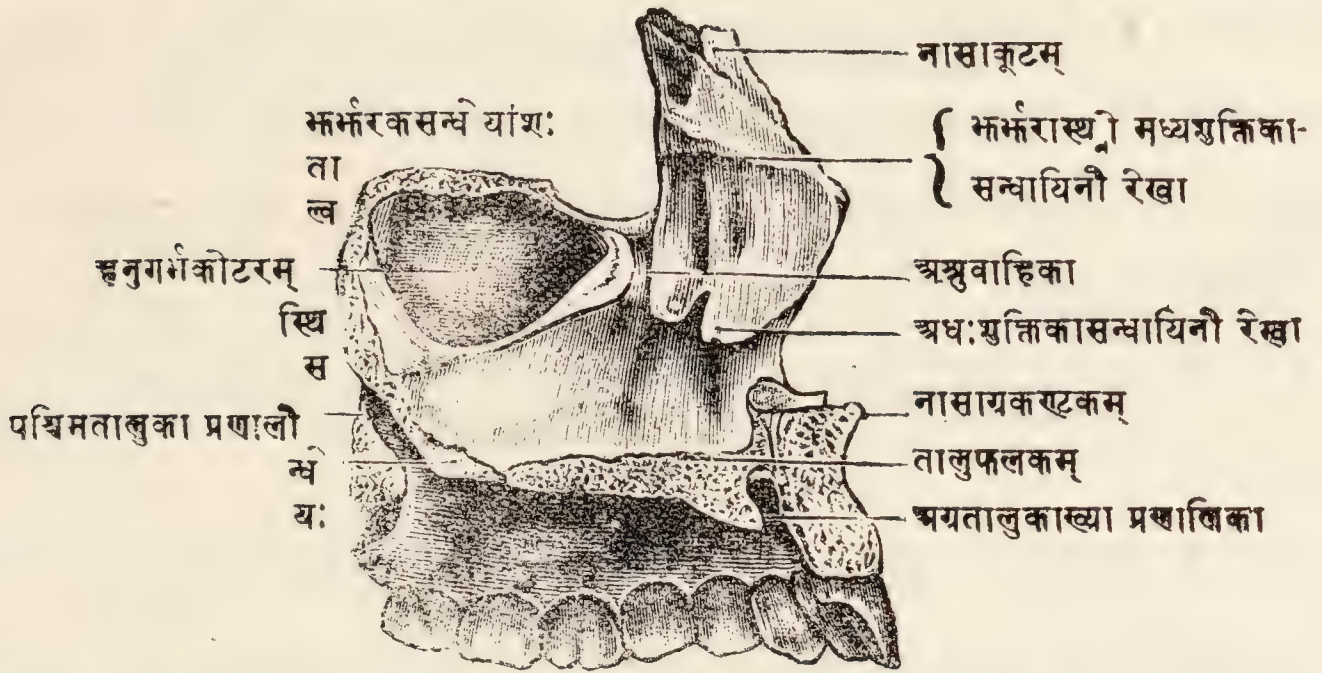 नासाकूटम्
झर्झरकसन्धेयांशः
झर्झरास्थ्नो मध्यशुक्तिका-
सन्धायिनी रेखा
ता
ल्व
हनुगर्भकोटरम्
अश्रुवाहिका
स्थि
अधःशुक्तिकासन्धायिनी रेखा
स
नासाग्रकण्टकम्
पश्चिमतालुका प्रणाली
न्धे
तालुफलकम्
यः
अग्रतालुकाख्या प्रणालिका